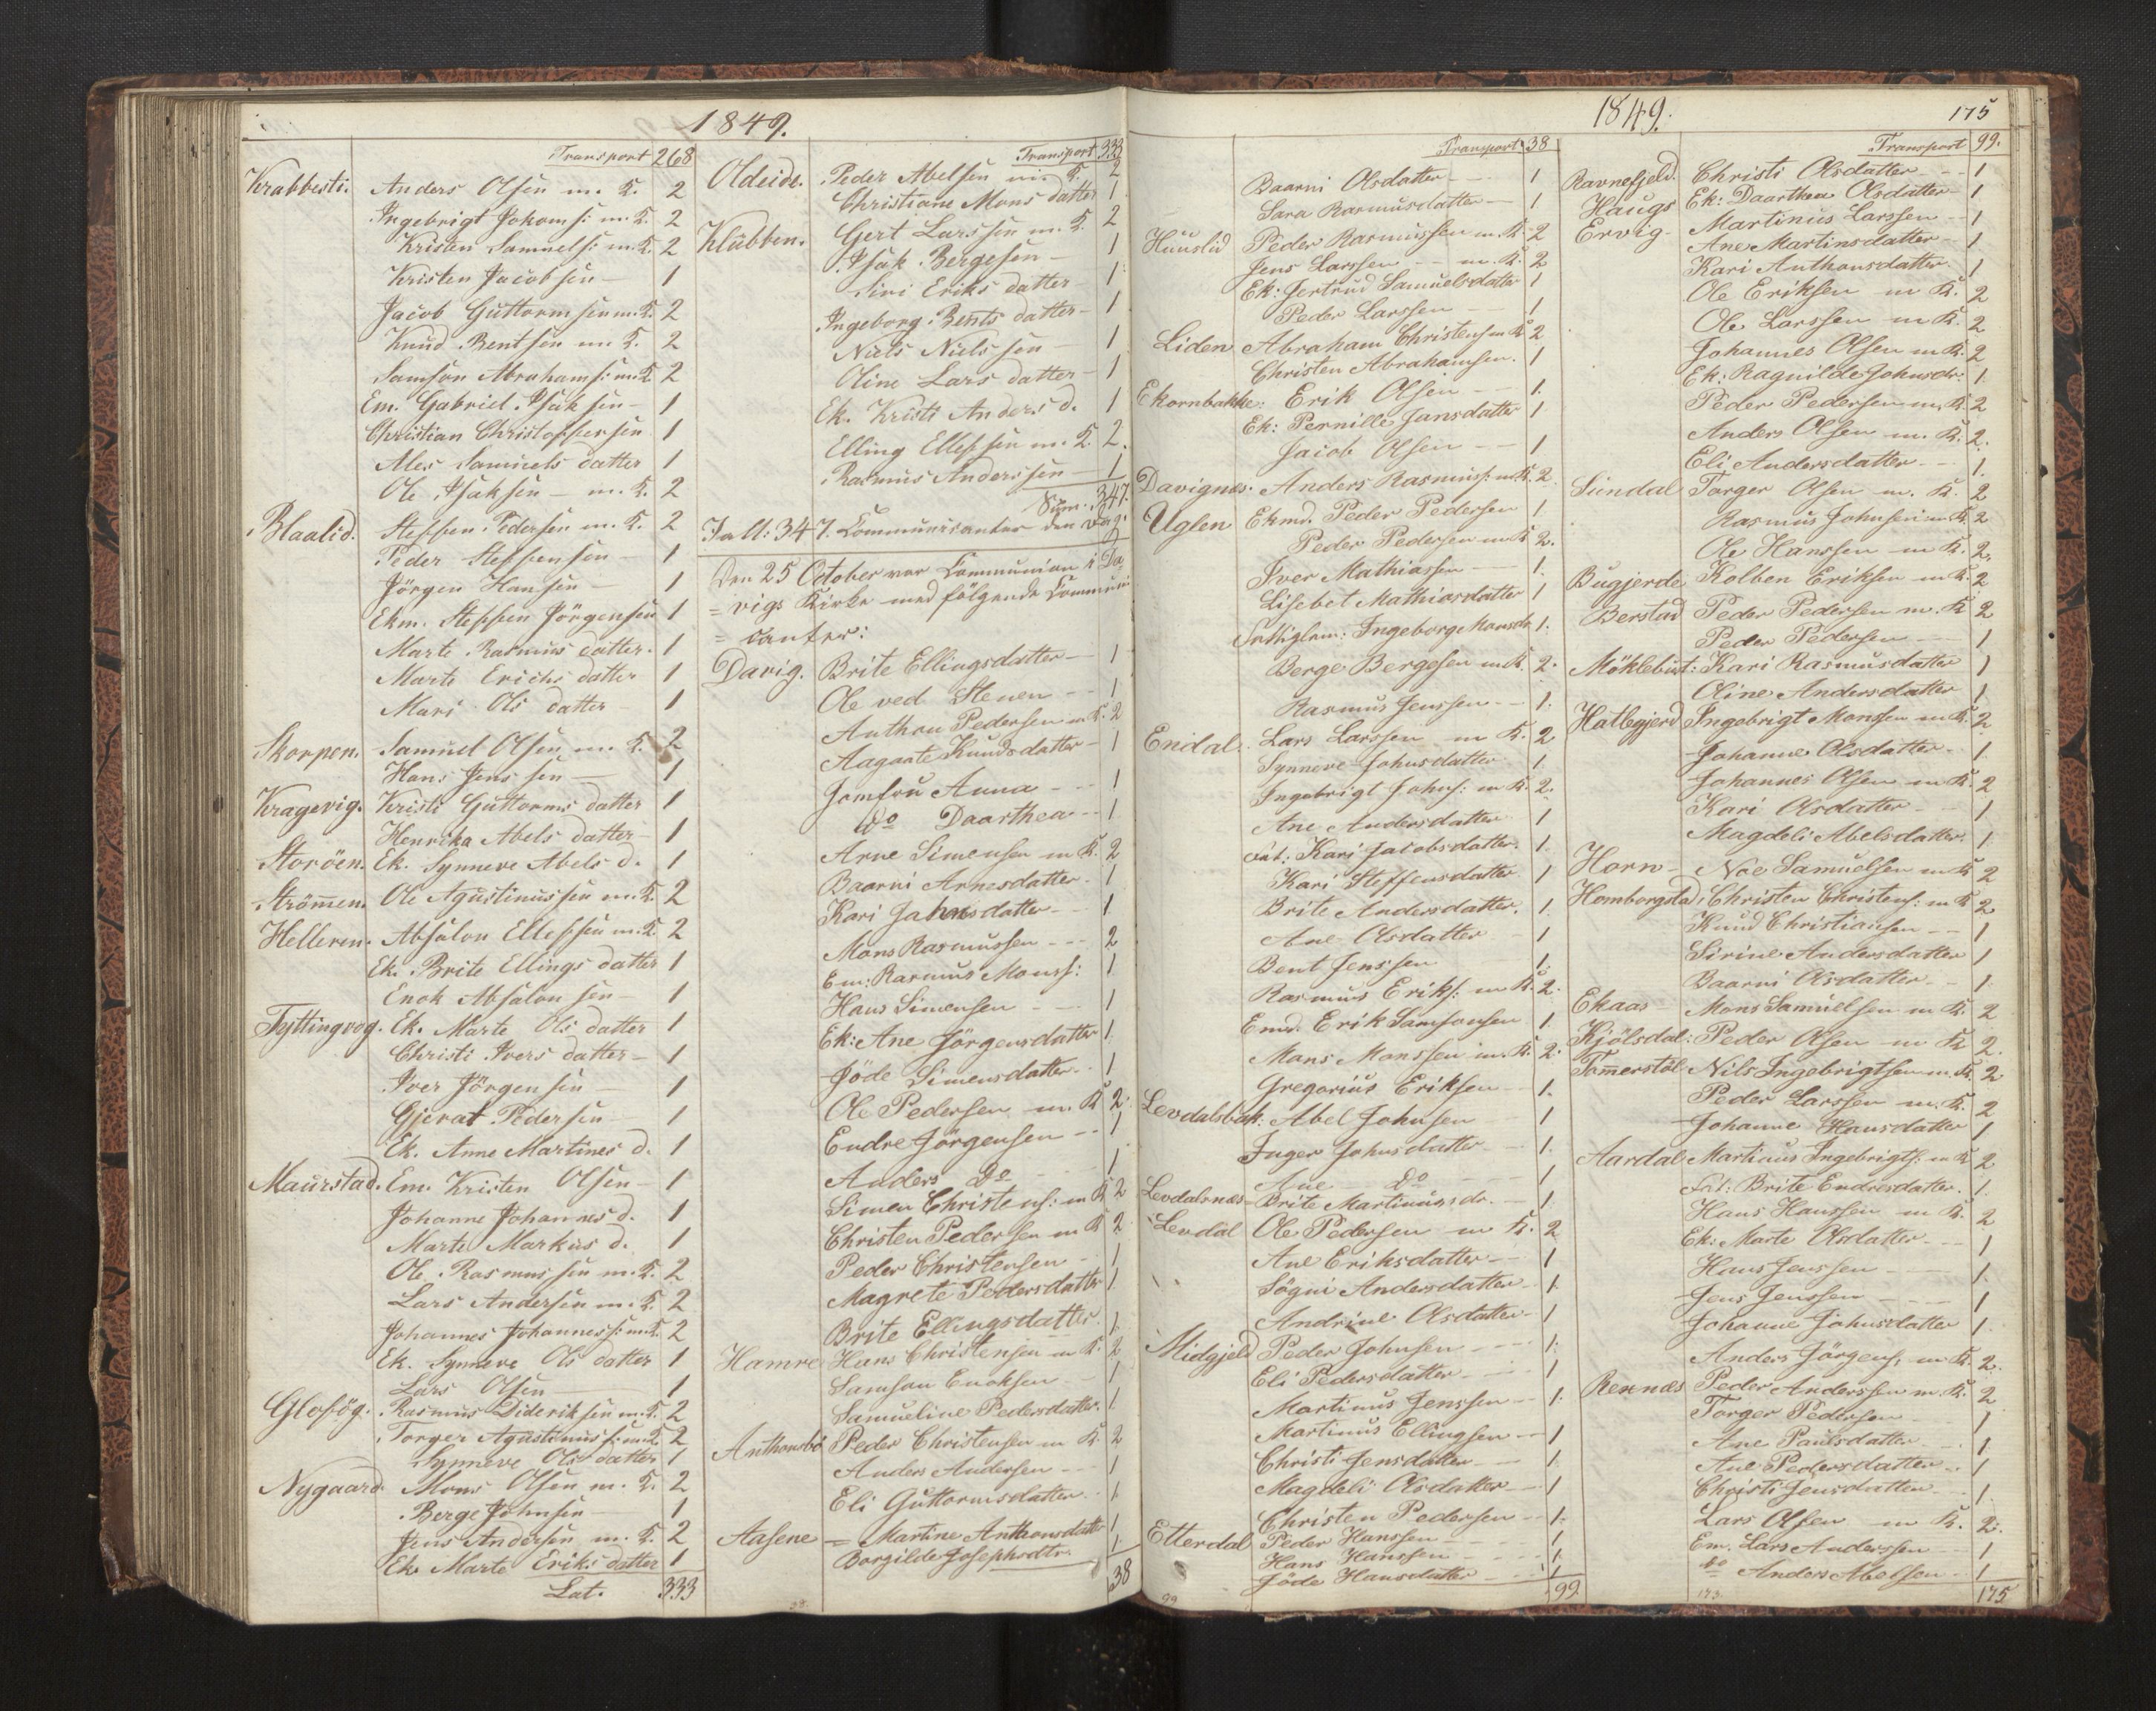 1849.
Transport 268
Krabbesti. Anders Olsen m. K. 2
Ingebrigt Jokoms: m. K. 2
Kristen Samuels: m. K. 2
Kristen Jacobsen - 1
Jacob Guttormsen m. K. 2
Knud Bentsen m. K. 2
Samson Abrahams: m. K. 2
Em. Gabriel Isaksen - 1
Christian Christoffersen 1
Ales Samuels datter 1
Ole Isaksen - m. K. 2
Blaalid. Steffen Pedersen m. K. 2
Peder Steffensen - 1
Jörgen Hansen - 1
Ekm. Steffen Jörgensen 1
Marte Rasmus datter. 1
Marte Erichs datter 1
Mari Ols datter - 1
Skorpen. Samuel Olsen m. K. 2
Hans Jenssen - 1
Kragevig. Kristi Guttorms datter 1
Henrika Abels datter - 1
Storöen. Ek. Synneve Abels d. 1
Strömen. Ole Agustinussen m. K. 2
Helleren. Absalon Ellefsen m. K. 2
Ek. Brite Ellings datter 1
Enok Absalonsen - 1
Tyttingvog. Ek. Marte Ols datter 1
Christi Ivers datter - 1
Iver Jörgensen - 1
Gjerat Pedersen - 1
Ek. Anne Martines d. 1
Maurstad. Em. Kristen Olsen - 1
Johanne Johannes d. 1
Marte Markus d. 1
Ole Rasmussen m. K. 2
Lars Andersen m. K. 2
Johannes Johanness: m. K. 2
Ek. Synneve Ols datter 1
Lars Olsen 1
Glosög. Rasmus Dideriksen m. K. 2
Torger Agustinuss: m. K. 2
Synneve Ols datter 1
Nygaard. Mons Olsen m. K. 2
Berge Johnsen - 1
Jens Andersen m. K. 2
Ek. Marte Eriks datter 1
Lat. 333
Transport 333
Oldeide. Peder Abelsen m. K. 2
Christiane Mons datter 1
Klubben. Gert Larssen m. K. 2
Isak Bergesen - 1
Siri Eriks datter - 1
Ingeborg Bents datter - 1
Niels Nielssen - 1
Oline Lars datter - 1
Ek. Kristi Anders d. 1
Elling Ellefsen m. K. 2.
Rasmus Anderssen - 1
Sum. 347.
Jalt: 347. Communicanter den Dag.
Den 25 October var Communion i Da-
=vigs Kirke med fölgende Communi
=canter:
Davig. Brite Ellingsdatter - 1
Ole ved Stenen - - 1
Anthon Pedersen m K. 2
Aagaate Knudsdatter - 1
Jomfru Anna - - 1
do Daarthea - - 1
Arne Simensen m K. 2
Baarni Arnesdatter - 1
Kari Johnsdatter - - 1
Mons Rasmussen - - - 2
Em: Rasmus Monss: 1
Hans Simensen - - 1
Ek: Ane Jörgensdatter 1
Jöde Simensdatter - 1
Ole Pedersen m. K 2
Endre Jörgensen - - 1
Anders do - - 1
Simen Christens: m K 2
Christen Pedersen m K 2
Peder Christensen - 1
Magrete Pedersdatter 1
Brite Ellingsdatter. 1.
Hamre Hans Christensen m K. 2
Samson Enoksen - - 1
Samueline Pedersdatter. 1
Anthonsbö Peder Christensen m K. 2
Anders Andersen - - 1
Eli Guttormsdatter. 1.
Aasene = Martine Anthonsdatter 1
Borgilde Josephsdtr. 1
38
1849.
175
Transport 38
Baarni Olsdatter - - 1
Sara Rasmusdatter - 1
Huuslid Peder Rasmussen m. K. 2
Jens Larssen - - m. K. 2
Ek: Jertrud Samuelsdatter 1
Peder Larssen - - 1
Liden Abraham Christens m K 2
Christen Abrahamsen. 1
Ekornbakke: Erik Olsen - - 1.
Ek: Pernille Jansdatter 1
Jacob Olsen - - 1
Davignes. Anders Rasmuss: m. K. 2.
Uglen Ekmd. Peder Pedersen 1.
Peder Pedersen m K 2.
Iver Mathiassen - - 1.
Lisebet Mathiasdatter 1
Fattiglem: Ingeborg Monsdr. 1.
Berge Bergesen m K. 2.
Rasmus Jenssen - - 1.
Endal. Lars Larssen m K. 2
Synneve Johnsdatter 1.
Ingebrigt Johns: m K. 2.
Ane Andersdatter 1
Fat: Kari Jacobsdatter. 1.
Kari Steffensdatter 1
Brite Andersdatter. 1.
Ane Olsdatter - 1
Bent Jenssen 1.
Rasmus Eriks: m K. 2.
Emd. Erik Samsonsen 1.
Mons Monssen m. K. 2.
Gregorius Eriksen - 1.
Levdalsbak: Abel Johnsen - 1
Inger Johnsdatter - 1.
Ane do - - - 1
Levdalsnæs - Brite Martinusdr. - 1
Levdal Ole Pedersen m K. 2
Ane Eriksdatter - 1
Sögni Andersdatter - 1.
Andrine Olsdatter - 1
Midgjeld Peder Johnsen - - - 1.
Eli Pedersdatter - - 1
Martinus Jenssen - - 1.
Martinus Ellingsen - - 1
Christi Jensdatter - - 1.
Magdeli Olsdatter - - 1
Christen Pedersen - - 1.
Etterdal Peder Hanssen - - - 1.
Hans Hanssen - - - - 1.
Jöde Hansdatter - - - 1.
99
Transport 99.
Ravnefjeld. Christi Olsdatter - - - 1
Haugs Ek: Daarthea Olsdatter - 1
Ervig - Martinus Larssen - - 1
Ane Martinsdatter - 1
Kari Anthonsdatter. 1
Ole Eriksen m K. 2
Ole Larssen m K. 2
Johannes Olsen m K. 2
Ek: Ragnilde Johnsdr. 1.
Peder Pedersen m. K. 2
Anders Olsen m. K. 2.
Eli Andersdatter - - 1.
Sundal Torger Olsen m. K. 2
Rasmus Johnsen m K. 2
Ole Hanssen m K. 2.
Bugjerde Kolben Eriksen m K. 2
Berstad Peder Pedersen m. K 2
Peder Pedersen - - 1
Möklebust: Kari Rasmusdatter 1
Oline Andersdatter 1.
Hatlegjerd Ingebrigt Monssen m K. 2
Johanne Olsdatter - 1.
Johannes Olsen m K 2
Kari Olsdatter - - 1
Magdeli Abelsdatter. 1.
Horn - Noe Samuelsen m K 2
Homborgstad, Christen Christens: m K 2
Knud Christiansen - - 1
Sirine Andersdatter 1
Baarni Olsdatter - - 1.
Ekaas - Mons Samuelsen m K. 2
Kjölsdal: Peder Olsen m K 2.
Tomerstöl Nils Ingebrigtsen m. K. 2
Peder Larssen m. K. 2
Johanne Hansdatter 1
Aardal Martinus Ingebrigts: m K 2
Fat: Brite Endresdatter. 1.
Hans Hanssen m K. 2
Ek: Marte Olsdatter - - 1
Hans Jenssen - - - 1.
Jens Jenssen - - - - 1
Johanne Johnsdatter 1.
Anders Jörgens, m K. 2.
Rennæs Peder Anderssen m K. 2
Torger Pedersen - 1
Ane Paulsdatter - - 1
Ane Pedersdatter - 1
Christi Jensdatter - 1.
Lars Olsen m K. 2.
Em. Lars Anderssen 1
do Anders Abelsen - 1
175